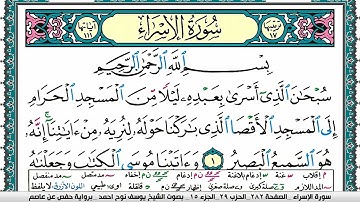 سُورَةُ الإِسْرَاءِ
بِسْمِ اللَّهِ الرَّحْمَنِ الرَّحِيمِ
سُبْحَانَ الَّذِي أَسْرَى بِعَبْدِهِ لَيْلًا مِنَ الْمَسْجِدِ الْحَرَامِ
إِلَى الْمَسْجِدِ الْأَقْصَا الَّذِي بَارَكْنَا حَوْلَهُ لِنُرِيَهُ مِنْ ءَايَاتِنَا إِنَّهُ
هُوَ السَّمِيعُ الْبَصِيرُ ١ وَءَاتَيْنَا مُوسَى الْكِتَابَ وَجَعَلْنَاهُ
سورة الإسراء الصفحة ٢٨٢ الحزب ٢٩ الجزء ١٥ بصوت الشيخ يوسف نوح احمد رواية حفص عن عاصم